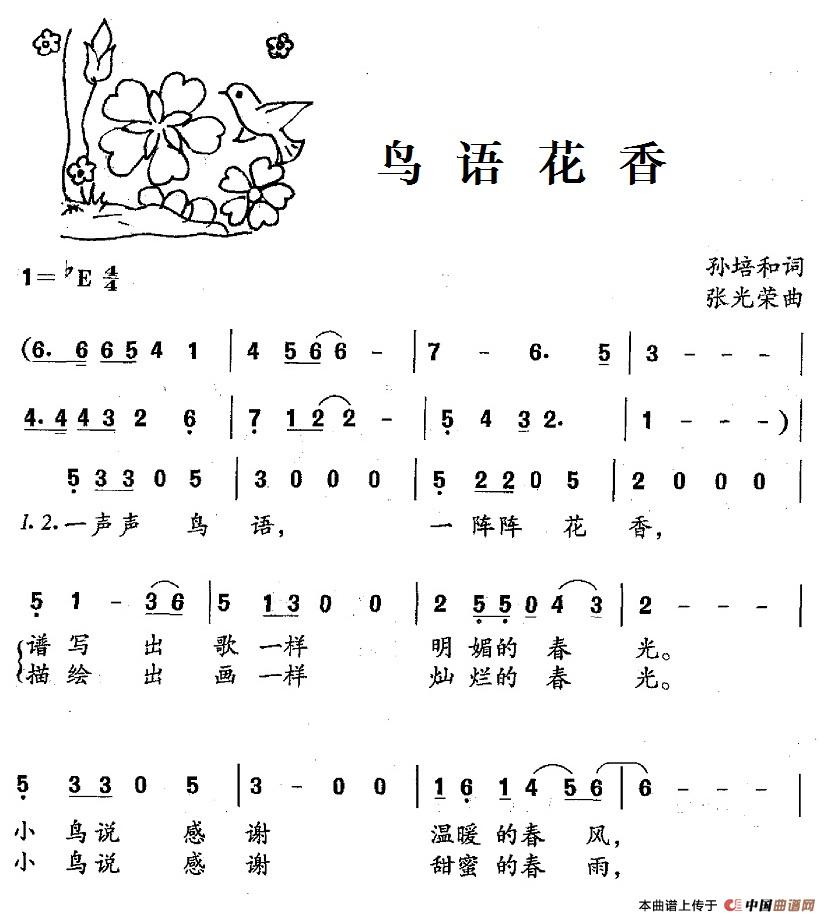 鸟语花香
1=♭E 4/4
孙培和词
张光荣曲
(6. 6 6 5 4 1 | 4 5 6 6 - | 7 - 6. 5 | 3 - - - |
4. 4 4 3 2 6 | 7 1 2 2 - | 5 4 3 2. | 1 - - - )
5 3 3 0 5 | 3 0 0 0 | 5 2 2 0 5 | 2 0 0 0 |
1. 2. 一声声 鸟 语, 一阵阵 花 香,
5 1 - 3 6 | 5 1 3 0 0 | 2 5 5 0 4 3 | 2 - - - |
谱写 出 歌一样 明媚的春 光。
描绘 出 画一样 灿烂的春 光。
5 3 3 0 5 | 3 - 0 0 | 1 6 1 4 5 6 | 6 - - - |
小鸟说 感谢 温暖的春 风,
小鸟说 感谢 甜蜜的春 雨,
本曲谱上传于 中国曲谱网